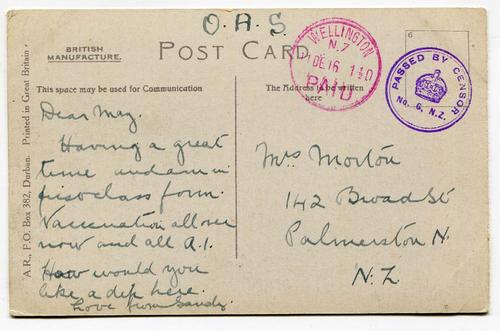 O.A.S
BRITISH
MANUFACTURE.
POST CARD
WELLINGTON
N.Z
1 DE 16 1½D
PAID
6
PASSED BY CENSOR
No. 6. N.Z.
This space may be used for Communication
The Address to be written
here
A.R., P.O. Box 382, Durban. Printed in Great Britain
Dear May.
Having a great
time and am in
first class form.
Vaccination all over
now and all A.1.
How would you
like a dip here.
Love from Sandy.
Mrs Morton
142 Broad St
Palmerston N.
N.Z